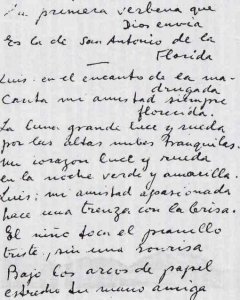 La primera verbena que
Dios envía
Es la de San Antonio de la
Florida
Luis: en el encanto de la ma-
drugada
Canta mi amistad siempre
florecida.
La luna grande luce y rueda
por las altas nubes tranquilas.
Mi corazon luce y rueda
en la noche verde y amarilla.
Luis; mi amistad apasionada
hace una trenza con la brisa.
El niño toca el pianillo
triste, sin una sonrisa
Bajo los arcos de papel
estrecho tu mano amiga